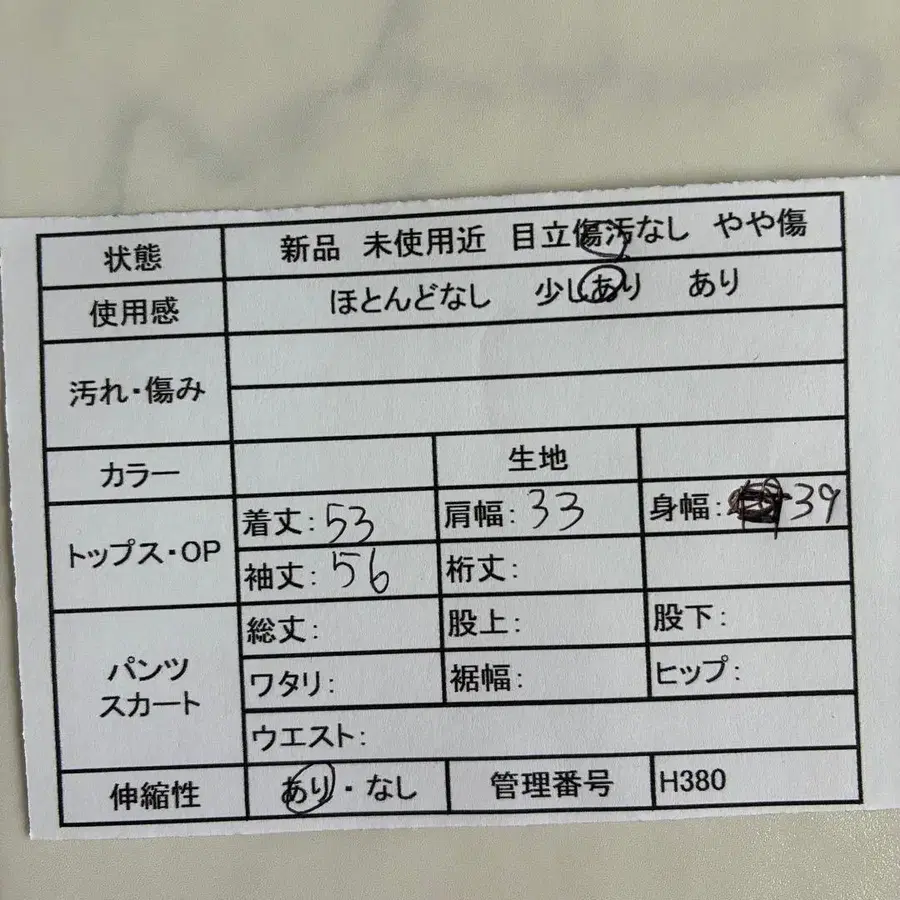 状態 新品 未使用近 目立傷汚なし やや傷
使用感 ほとんどなし 少しあり あり
汚れ・傷み
カラー 生地
トップス・OP
着丈: 53 肩幅: 33 身幅: 39
袖丈: 56 裄丈:
パンツ
スカート
総丈: 股上: 股下:
ワタリ: 裾幅: ヒップ:
ウエスト:
伸縮性 あり・なし 管理番号 H380